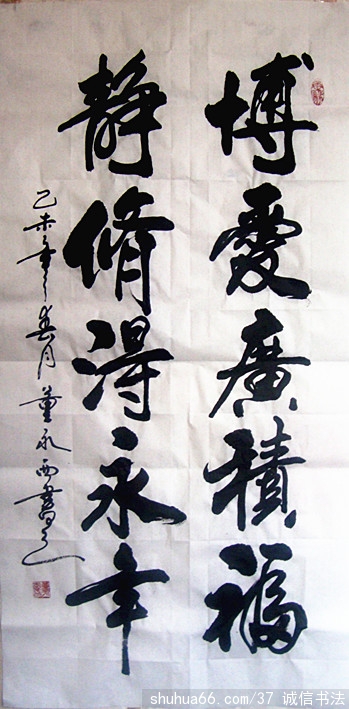 博愛廣積福
靜脩得永年
乙未年春月董永西書
shuhua66.com/37 诚信书法